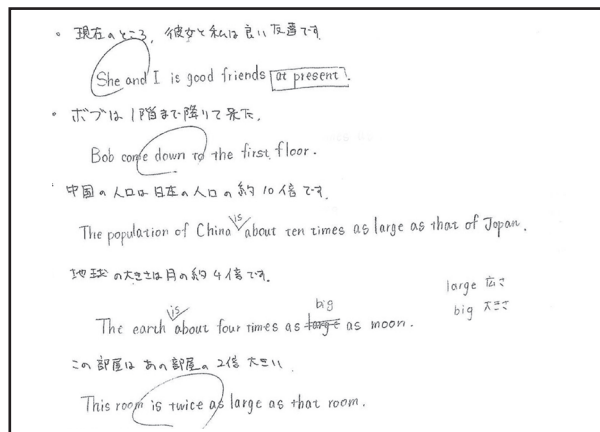 • 現在のところ、彼女と私は良い友達です
She and I is good friends at present.
• ボブは1階まで降りて来た。
Bob come down to the first floor.
中国の人口は日本の人口の約10倍です。
The population of China is about ten times as large as that of Japan.
地球の大きさは月の約4倍です。
large 広さ
big 大きさ
The earth is about four times as large big as moon.
この部屋はあの部屋の2倍大きい
This room is twice as large as that room.